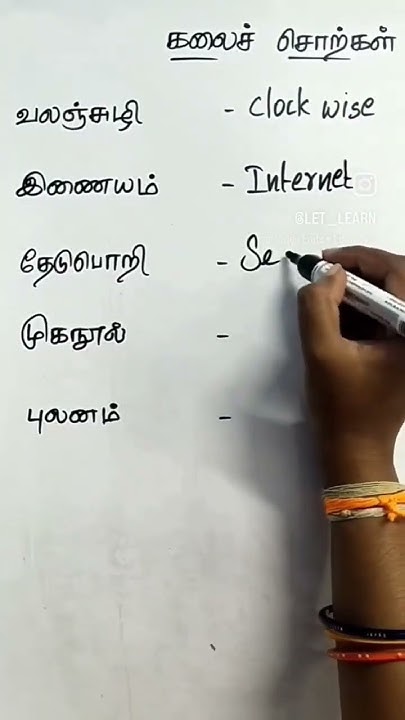 கலைச் சொற்கள்
வலஞ்சுழி - Clock wise
இணையம் - Internet
@LET_LEARN
தேடுபொறி - Se
முகநூல் -
புலனம் -